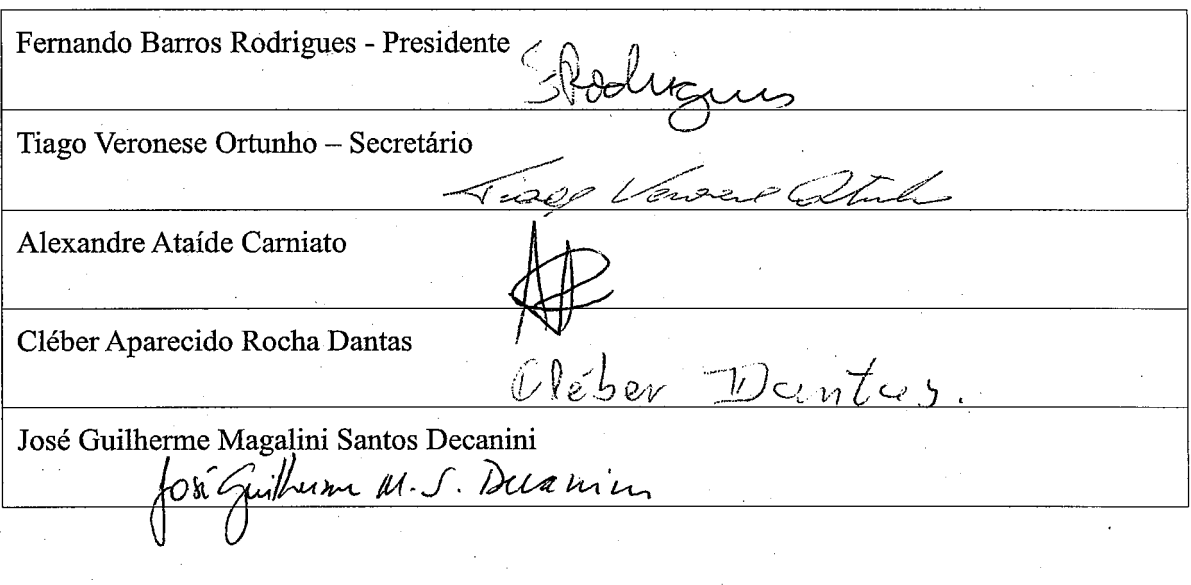 Fernando Barros Rodrigues - Presidente
FRodrigues
Tiago Veronese Ortunho – Secretário
Tiago Veronese Ortunho
Alexandre Ataíde Carniato
Cléber Aparecido Rocha Dantas
Cléber Dantas.
José Guilherme Magalini Santos Decanini
José Guilherme M. S. Decanini